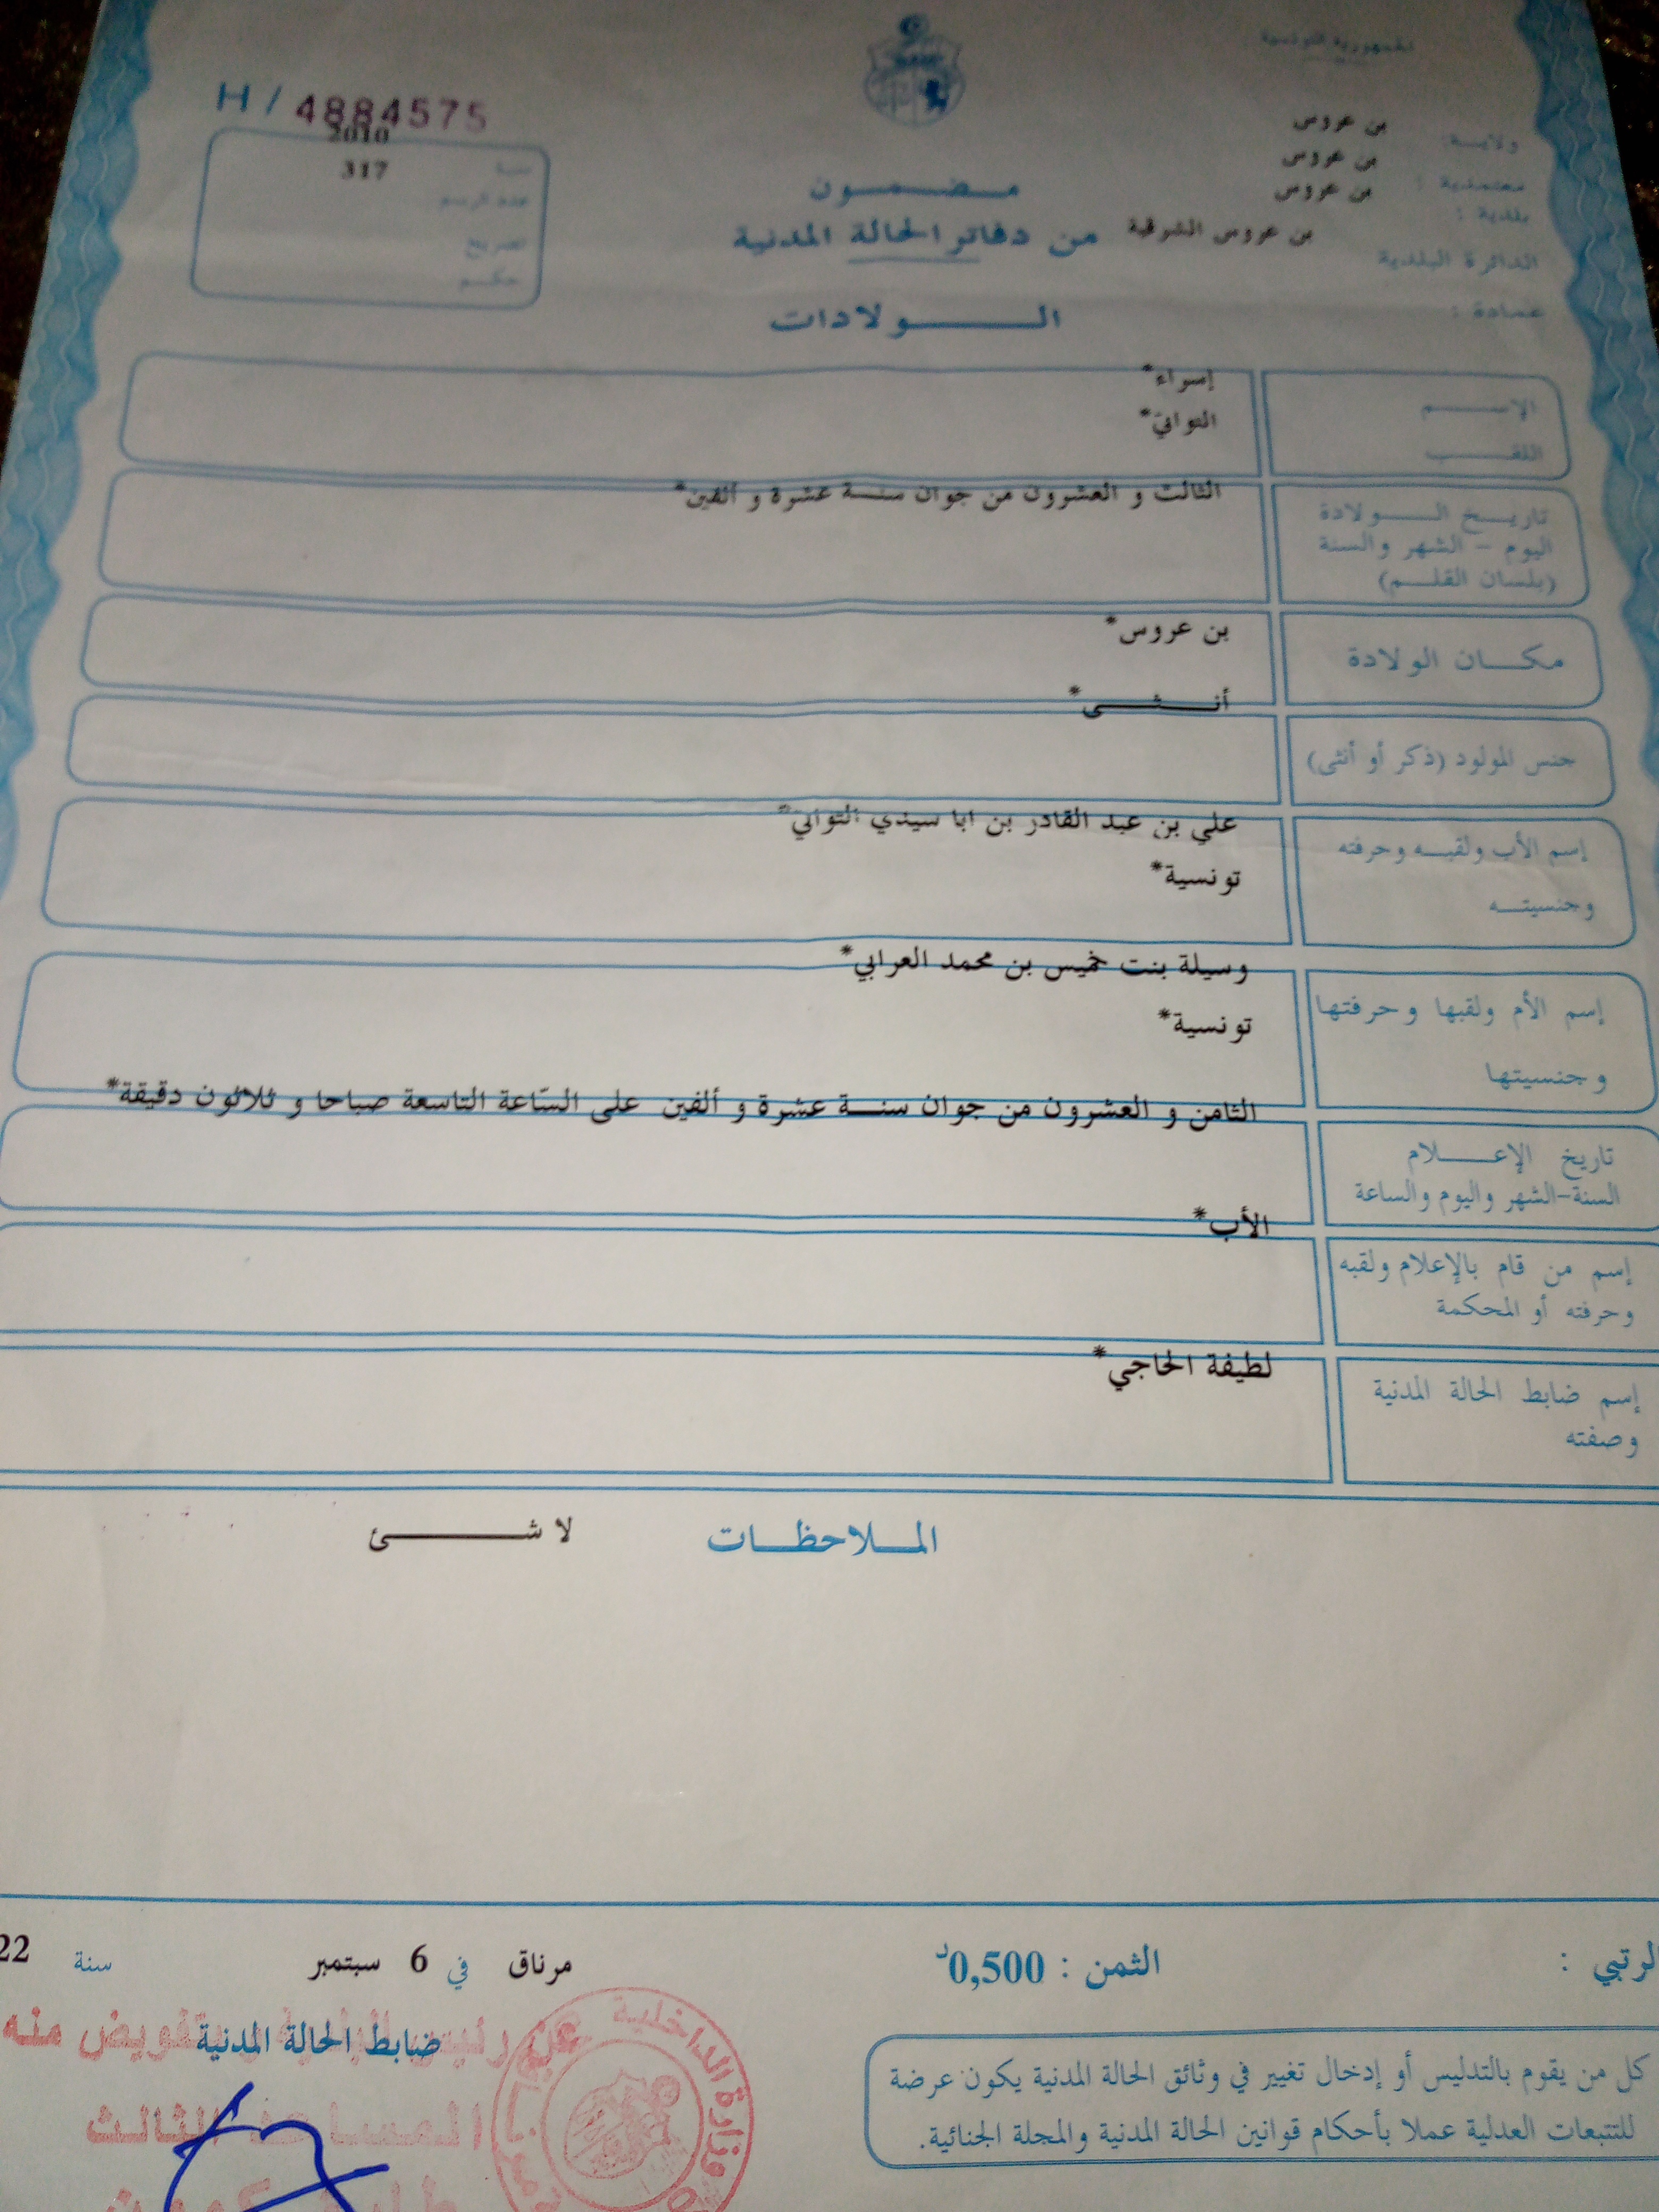 الجمهورية التونسية
H / 4884575
ولايـــة: بن عروس
معتمدية : بن عروس
بلدية : بن عروس
الدائرة البلدية بن عروس الشرقية
عمادة :
سنة 2010
عدد الرسم 317
تصريح
حكم
مـــضـــمـــون
من دفاتر الحالة المدنية
الـــــولادات
الإســـــم إسراء*
اللقــــب التواتي*
تاريـــخ الـــــولادة الثالث و العشرون من جوان سنــة عشرة و ألفين*
اليوم – الشهر والسنة
(بلسان القلـــم)
مكـــان الولادة بن عروس*
جنس المولود (ذكر أو أنثى) أنــــثــــى*
إسم الأب ولقبـــه وحرفته علي بن عبد القادر بن ابا سيدي التواتي*
وجنسيتـــه تونسية*
إسم الأم ولقبها وحرفتها وسيلة بنت خميس بن محمد العرابي*
وجنسيتها تونسية*
تاريخ الإعـــــلام الثامن و العشرون من جوان سنــة عشرة و ألفين على السّاعة التاسعة صباحا و ثلاثون دقيقة*
السنة-الشهر واليوم والساعة
إسم من قام بالإعلام ولقبه الأب*
وحرفته أو المحكمة
إسم ضابط الحالة المدنية لطيفة الحاجي*
وصفته
المـــلاحظـــات لا شـــــــئ
الرتبي :
الثمن : 0,500د
مرناق في 6 سبتمبر سنة 22
ضابط الحالة المدنية
المساعد الثالث
وزارة الداخلية
كل من يقوم بالتدليس أو إدخال تغيير في وثائق الحالة المدنية يكون عرضة
للتتبعات العدلية عملا بأحكام قوانين الحالة المدنية والمجلة الجنائية.